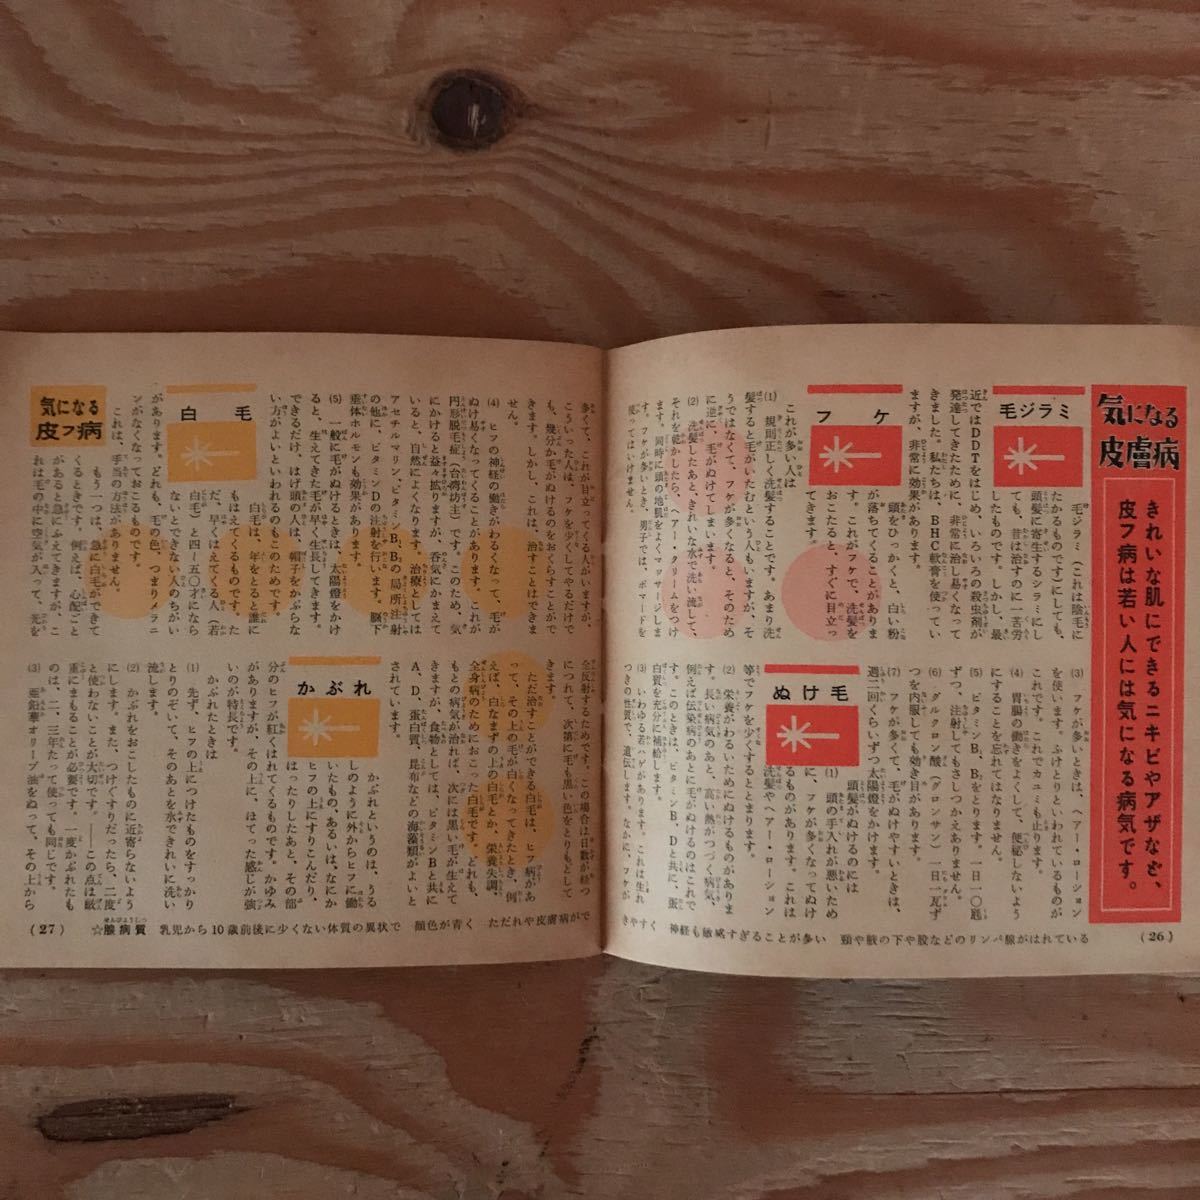 気になる
皮膚病
きれいな肌にできるニキビやアザなど、
皮フ病は若い人には気になる病気です。
毛ジラミ
毛ジラミ(これは陰毛に
たかるものです)にしても、
頭髪に寄生するシラミにし
ても、昔は治すのに一苦労
したものです。しかし、最
近ではDDTをはじめ、いろいろの殺虫剤が
発達してきたために、非常に治り易くなって
きました。私たちは、BHC軟膏を使ってい
ますが、非常に効果があります。
フケ
頭をひっかくと、白い粉
が落ちてくることがありま
す。これがフケで、洗髪を
おこたると、すぐに目立っ
てきます。
これが多い人は
(1) 規則正しく洗髪することです。あまり洗
髪すると毛がいたむという人もいますが、そ
うではなくて、フケが多くなると、そのため
に逆に、毛がぬけてしまいます。
(2) 洗髪したあと、きれいな水で洗い流して、
それを乾かしたら、ヘアー・クリームをつけ
ます。同時に頭の地肌をよくマッサージしま
す。フケが多いとき、男子では、ポマードを
使ってはいけません。
(3) フケが多いときは、ヘアー・ローション
を使います。ふけとりといわれているものが
これです。これでカユミも止ります。
(4) 胃腸の働きをよくして、便秘しないよう
にすることを忘れてはなりません。
(5) ビタミンB₁B₂をとります。一日一〇瓱
ずつ、注射してもさしつかえありません。
(6) グルクロン酸(グロンサン)一日一瓦ず
つを内服しても効き目があります。
(7) フケが多くて、毛がぬけやすいときは、
週二回くらいずつ太陽燈をかけます。
ぬけ毛
頭髪がぬけるのには
(1) 頭の手入れが悪いため
に、フケが多くなってぬけ
るものがあります。これは
洗髪やヘアー・ローション
等でフケを少くするととまります。
(2) 栄養がわるいためにぬけるものがありま
す。長い病気のあと、高い熱がつづく病気、
例えば伝染病のあとに毛がぬけるのはこれで
す。このときは、ビタミンB₁Dと共に、蛋
白質を充分に補給します。
(3) いわゆる若ハゲがあります。これは生れ
つきの性質で、遺伝します。なかに、フケが
きやすく 神経も敏感すぎることが多い 頸や腋の下や股などのリンパ線がはれている
(26)
多くて、これが目立ってくる人がいますが、
こういった人は、フケを少くしてやるだけで
も、幾分か毛がぬけるのをおくらすことがで
きます。しかし、これは、治すことはできま
せん。
(4) ヒフの神経の働きがわるくなって、毛が
ぬけ易くなってくることがあります。これが
円形脱毛症(台湾坊主)です。このため、気
にかけると益々拡りますが、呑気にかまえて
いると、自然によくなります。治療としては
アセチルマリン、ビタミンB₁B₂の局所注射
の他に、ビタミンDの注射を行います。脳下
垂体ホルモンも効果があります。
(5) 一般に毛がぬけるときは、太陽燈をかけ
ると、生えてきた毛が早く生長してきます。
できるだけ、はげ頭の人は、帽子をかぶらな
い方がよいといわれるのもこのためです。
白毛
白毛は、年をとると誰に
もはえてくるものです。た
だ、早くはえてくる人(若
白毛)と四―五〇才になら
ないとできない人のちがい
があります。どれも、毛の色、つまりメラニ
ンがなくなっておこるものです。
これは、手当の方法がありません。
もう一つは、急に白毛ができて
くるときです。例えば、心配ごと
があると急にふえてきますが、こ
れは毛の中に空気が入って、光を
気になる
皮フ病
全反射するためです。この場合は日数が経つ
につれて、次第に毛も黒い色をとりもどして
きます。
ただ治すことができる白毛は、ヒフ病があ
って、その上の毛が白くなってきたとき、例
えば、白なまずの上の白毛とか、栄養失調、
全身病のためにおこった白毛です。どれも、
もとの病気が治れば、次には黒い毛が生えて
きますが、食物としては、ビタミンBと共に
A、D、蛋白質、昆布などの海藻類がよいと
されています。
かぶれ
かぶれというのは、うる
しのように外からヒフに働
いたもの、あるいは、なにか
ヒフの上にすりこんだり、
はったりしたあと、その部
分のヒフが紅くはれてくるものです。かゆみ
がありますが、その上に、ほてった感じが強
いのが特長です。
かぶれたときは
(1) 先ず、ヒフの上につけたものをすっかり
とりのぞいて、そのあとを水できれいに洗い
流します。
(2) かぶれをおこしたものに近寄らないよう
にします。また、つけぐすりだったら、二度
と使わないことが大切です。――この点は厳
重にまもることが必要です。一度かぶれたも
のは、二、三年たって使っても同じです。
(3) 亜鉛華オリーブ油をぬって、その上から
(27) ☆腺病質 乳児から10歳前後に少くない体質の異状で 顔色が青く ただれや皮膚病がで